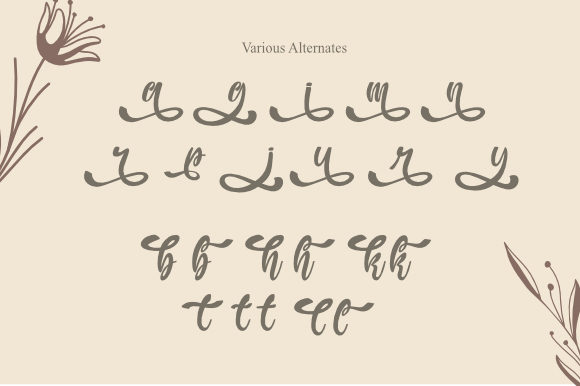 Various Alternates
a g i m n
r j u r y
b b h h k k
t t t